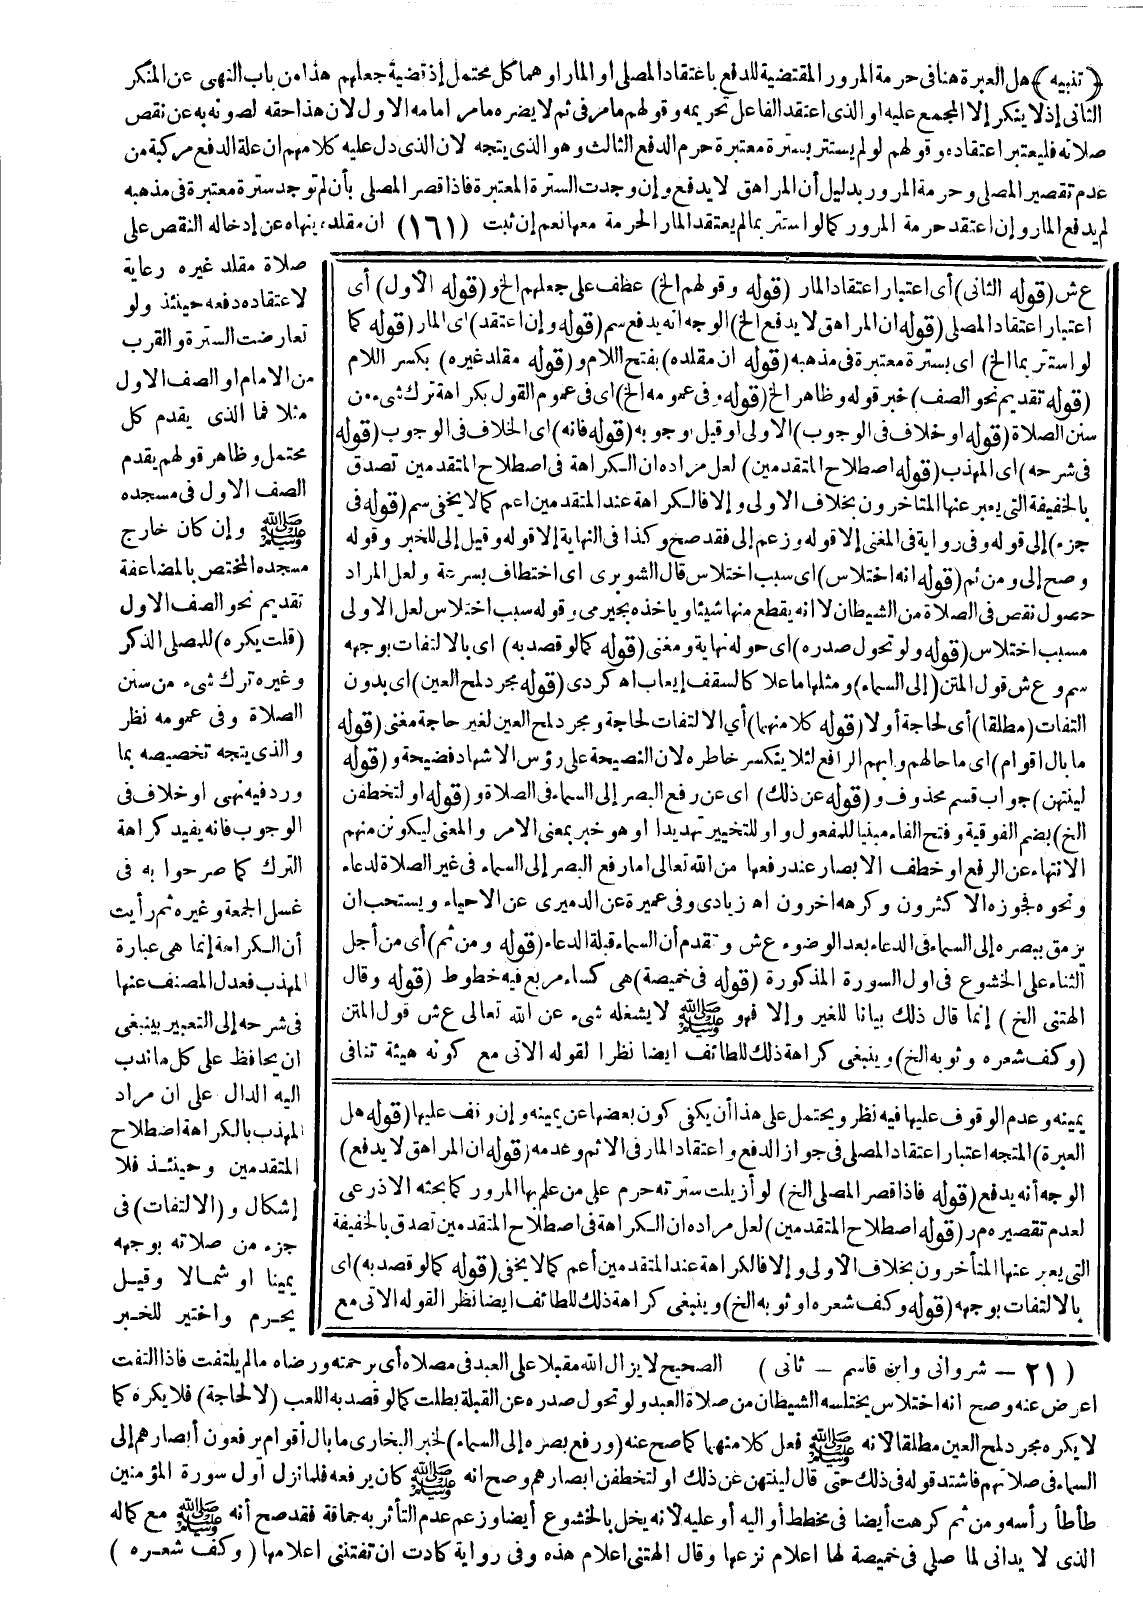 ﴿ تنبيه ﴾ هل العبرة هنا فى حرمة المرور المقتضية للدفع باعتقاد المصلى او المار او هما كل محتمل إذ قضية جعلهم هذا من باب النهى عن المنكر
الثانى إذ لا ينكر إلا المجمع عليه او الذى اعتقد الفاعل تحريمه وقولهم مامر فى ثم لا يضره مامر امامه الاول لان هذا حقه لصونه به عن نقص
صلاته فليعتبر اعتقاده وقولهم لو لم يستتر بسترة معتبرة حرم الدفع الثالث وهو الذى يتجه لان الذى دل عليه كلامهم ان علة الدفع مركبة من
عدم تقصير المصلى وحرمة المرور بدليل أن المراهق لا يدفع وإن وجدت السترة المعتبرة فاذا قصر المصلى بأن لم توجد سترة معتبرة فى مذهبه
لم يدفع المار وإن اعتقد حرمة المرور كما لو استتر بما لم يعتقد المار الحرمة معها نعم إن ثبت (١٦١) ان مقلده ينهاه عن إدخاله النقص على
صلاة مقلد غيره رعاية
لاعتقاده دفعه حينئذ ولو
تعارضت السترة والقرب
من الامام او الصف الاول
مثلا فما الذى يقدم كل
محتمل وظاهر قولهم يقدم
الصف الاول فى مسجده
ﷺ وإن كان خارج
مسجده المختص بالمضاعفة
تقديم نحو الصف الاول
(قلت يكره) للمصلى الذكر
وغيره ترك شىء من سنن
الصلاة وفى عمومه نظر
والذى يتجه تخصيصه بما
ورد فيه نهى او خلاف فى
الوجوب فانه يفيد كراهة
الترك كما صرحوا به فى
غسل الجمعة وغيره ثم رأيت
أن الكراهة إنما هى عبارة
المهذب فعدل المصنف عنها
فى شرحه إلى التعبير بينبغى
ان يحافظ على كل ماندب
اليه الدال على ان مراد
المهذب بالكراهة اصطلاح
المتقدمين وحينئذ فلا
إشكال و (الالتفات) فى
جزء من صلاته بوجهه
يمينا او شمالا وقيل
يحرم واختير للخبر
ع ش (قوله الثانى) أى اعتبار اعتقاد المار (قوله وقولهم الخ) عطف على جعلهم الخ و(قوله الأول) أى
اعتبار اعتقاد المصلى (قوله ان المراهق لا يدفع الخ) الوجه انه يدفع سم (قوله وإن اعتقد) اى المار (قوله كما
لو استتر بما الخ) اى بسترة معتبرة فى مذهبه (قوله ان مقلده) بفتح اللام و(قوله مقلد غيره) بكسر اللام
(قوله تقديم نحو الصف) خبر قوله وظاهر الخ (قوله وفى عمومه الخ) اى فى عموم القول بكراهة ترك شىء من
سنن الصلاة (قوله او خلاف فى الوجوب) الاولى او قيل بوجوبه (قوله فانه) اى الخلاف فى الوجوب (قوله
فى شرحه) اى المهذب (قوله اصطلاح المتقدمين) لعل مراده ان الكراهة فى اصطلاح المتقدمين تصدق
بالخفيفة التى يعبر عنها المتاخرون بخلاف الاولى وإلا فالكراهة عند المتقدمين اعم كما لا يخفى سم (قوله فى
جزء) إلى قوله وفى رواية فى المغنى إلا قوله وزعم إلى فقد صح وكذا فى النهاية إلا قوله وقيل إلى للخبر وقوله
وصح إلى ومن ثم (قوله انه اختلاس) اى سبب اختلاس قال الشوبرى اى اختطاف بسرعة ولعل المراد
حصول نقص فى الصلاة من الشيطان لا انه يقطع منها شيئا وياخذه بجيرمى وقوله سبب اختلاس لعل الاولى
مسبب اختلاس (قوله ولو تحول صدره) اى حوله نهاية ومغنى (قوله كما لو قصد به) اى بالالتفات بوجهه
سم وع ش قول المتن (إلى السماء) ومثلها ما علا كالسقف إيعاب اه كردى (قوله مجرد لمح العين) اى بدون
التفات (مطلقا) أى لحاجة أو لا (قوله كلا منهما) أى الالتفات لحاجة ومجرد لمح العين لغير حاجة مغنى (قوله
ما بال اقوام) اى ما حالهم وابهم الرافع لئلا ينكسر خاطره لان النصيحة على رؤس الاشهاد فضيحة و(قوله
لينتهن) جواب قسم محذوف و(قوله عن ذلك) اى عن رفع البصر إلى السماء فى الصلاة و(قوله او لتخطفن
الخ) بضم الفوقية وفتح الفاء مبنيا للمفعول واو للتخيير تهديدا او هو خبر بمعنى الامر والمعنى ليكونن منهم
الانتهاء عن الرفع او خطف الابصار عند رفعها من الله تعالى اما رفع البصر إلى السماء فى غير الصلاة لدعاء
ونحوه فجوزه الاكثرون وكرهه اخرون اه زيادى وفى عميرة عن الدميرى عن الاحياء ويستحب ان
يرمق ببصره إلى السماء فى الدعاء بعد الوضوء ع ش وتقدم أن السماء قبلة الدعاء (قوله ومن ثم) أى من أجل
الثناء على الخشوع فى اول السورة المذكورة (قوله فى خميصة) هى كساء مربع فيه خطوط (قوله وقال
الهتنى الخ) إنما قال ذلك بيانا للغير وإلا فهو ﷺ لا يشغله شىء عن الله تعالى ع ش قول المتن
(وكف شعره وثوبه الخ) وينبغى كراهة ذلك للطائف ايضا نظرا لقوله الاتى مع كونه هيئة تنافى
يمينه وعدم الوقوف عليها فيه نظر ويحتمل على هذا أن يكفى كون بعضها عن يمينه وإن وقف عليها (قوله هل
العبرة) المتجه اعتبار اعتقاد المصلى فى جواز الدفع واعتقاد المار فى الاثم وعدمه (قوله ان المراهق لا يدفع)
الوجه أنه يدفع (قوله فاذا قصر المصلى الخ) لو أزيلت سترته حرم على من علم بها المرور كما بحثه الاذرعى
لعدم تقصيره م ر (قوله اصطلاح المتقدمين) لعل مراده ان الكراهة فى اصطلاح المتقدمين تصدق بالخفيفة
التى يعبر عنها المتأخرون بخلاف الأولى وإلا فالكراهة عند المتقدمين أعم كما لا يخفى (قوله كما لو قصد به) اى
بالالتفات بوجهه (قوله وكف شعره او ثوبه الخ) وينبغى كراهة ذلك للطائف ايضا نظرا لقوله الاتى مع
(٢١ – شروانى وابن قاسم – ثانى) الصحيح لا يزال الله مقبلا على العبد فى مصلاه أى برحمته ورضاه ما لم يلتفت فاذا التفت
اعرض عنه وصح انه اختلاس يختلسه الشيطان من صلاة العبد ولو تحول صدره عن القبلة بطلت كما لو قصد به اللعب (لا لحاجة) فلا يكره كما
لا يكره مجرد لمح العين مطلقا لأنه ﷺ فعل كلا منهما كما صح عنه (ورفع بصره إلى السماء) لخبر البخارى ما بال أقوام يرفعون أبصارهم إلى
السماء فى صلاتهم فاشتد قوله فى ذلك حتى قال لينتهن عن ذلك او لتخطفن ابصارهم وصح انه ﷺ كان يرفعه فلما نزل اول سورة المؤمنين
طأطأ رأسه ومن ثم كرهت أيضا فى مخطط أو اليه أو عليه لأنه يخل بالخشوع أيضا وزعم عدم التأثر به حماقة فقد صح أنه ﷺ مع كماله
الذى لا يدانى لما صلى فى خميصة لها اعلام نزعها وقال الهتنى اعلام هذه وفى رواية كادت ان تفتننى اعلامها (وكف شعره)